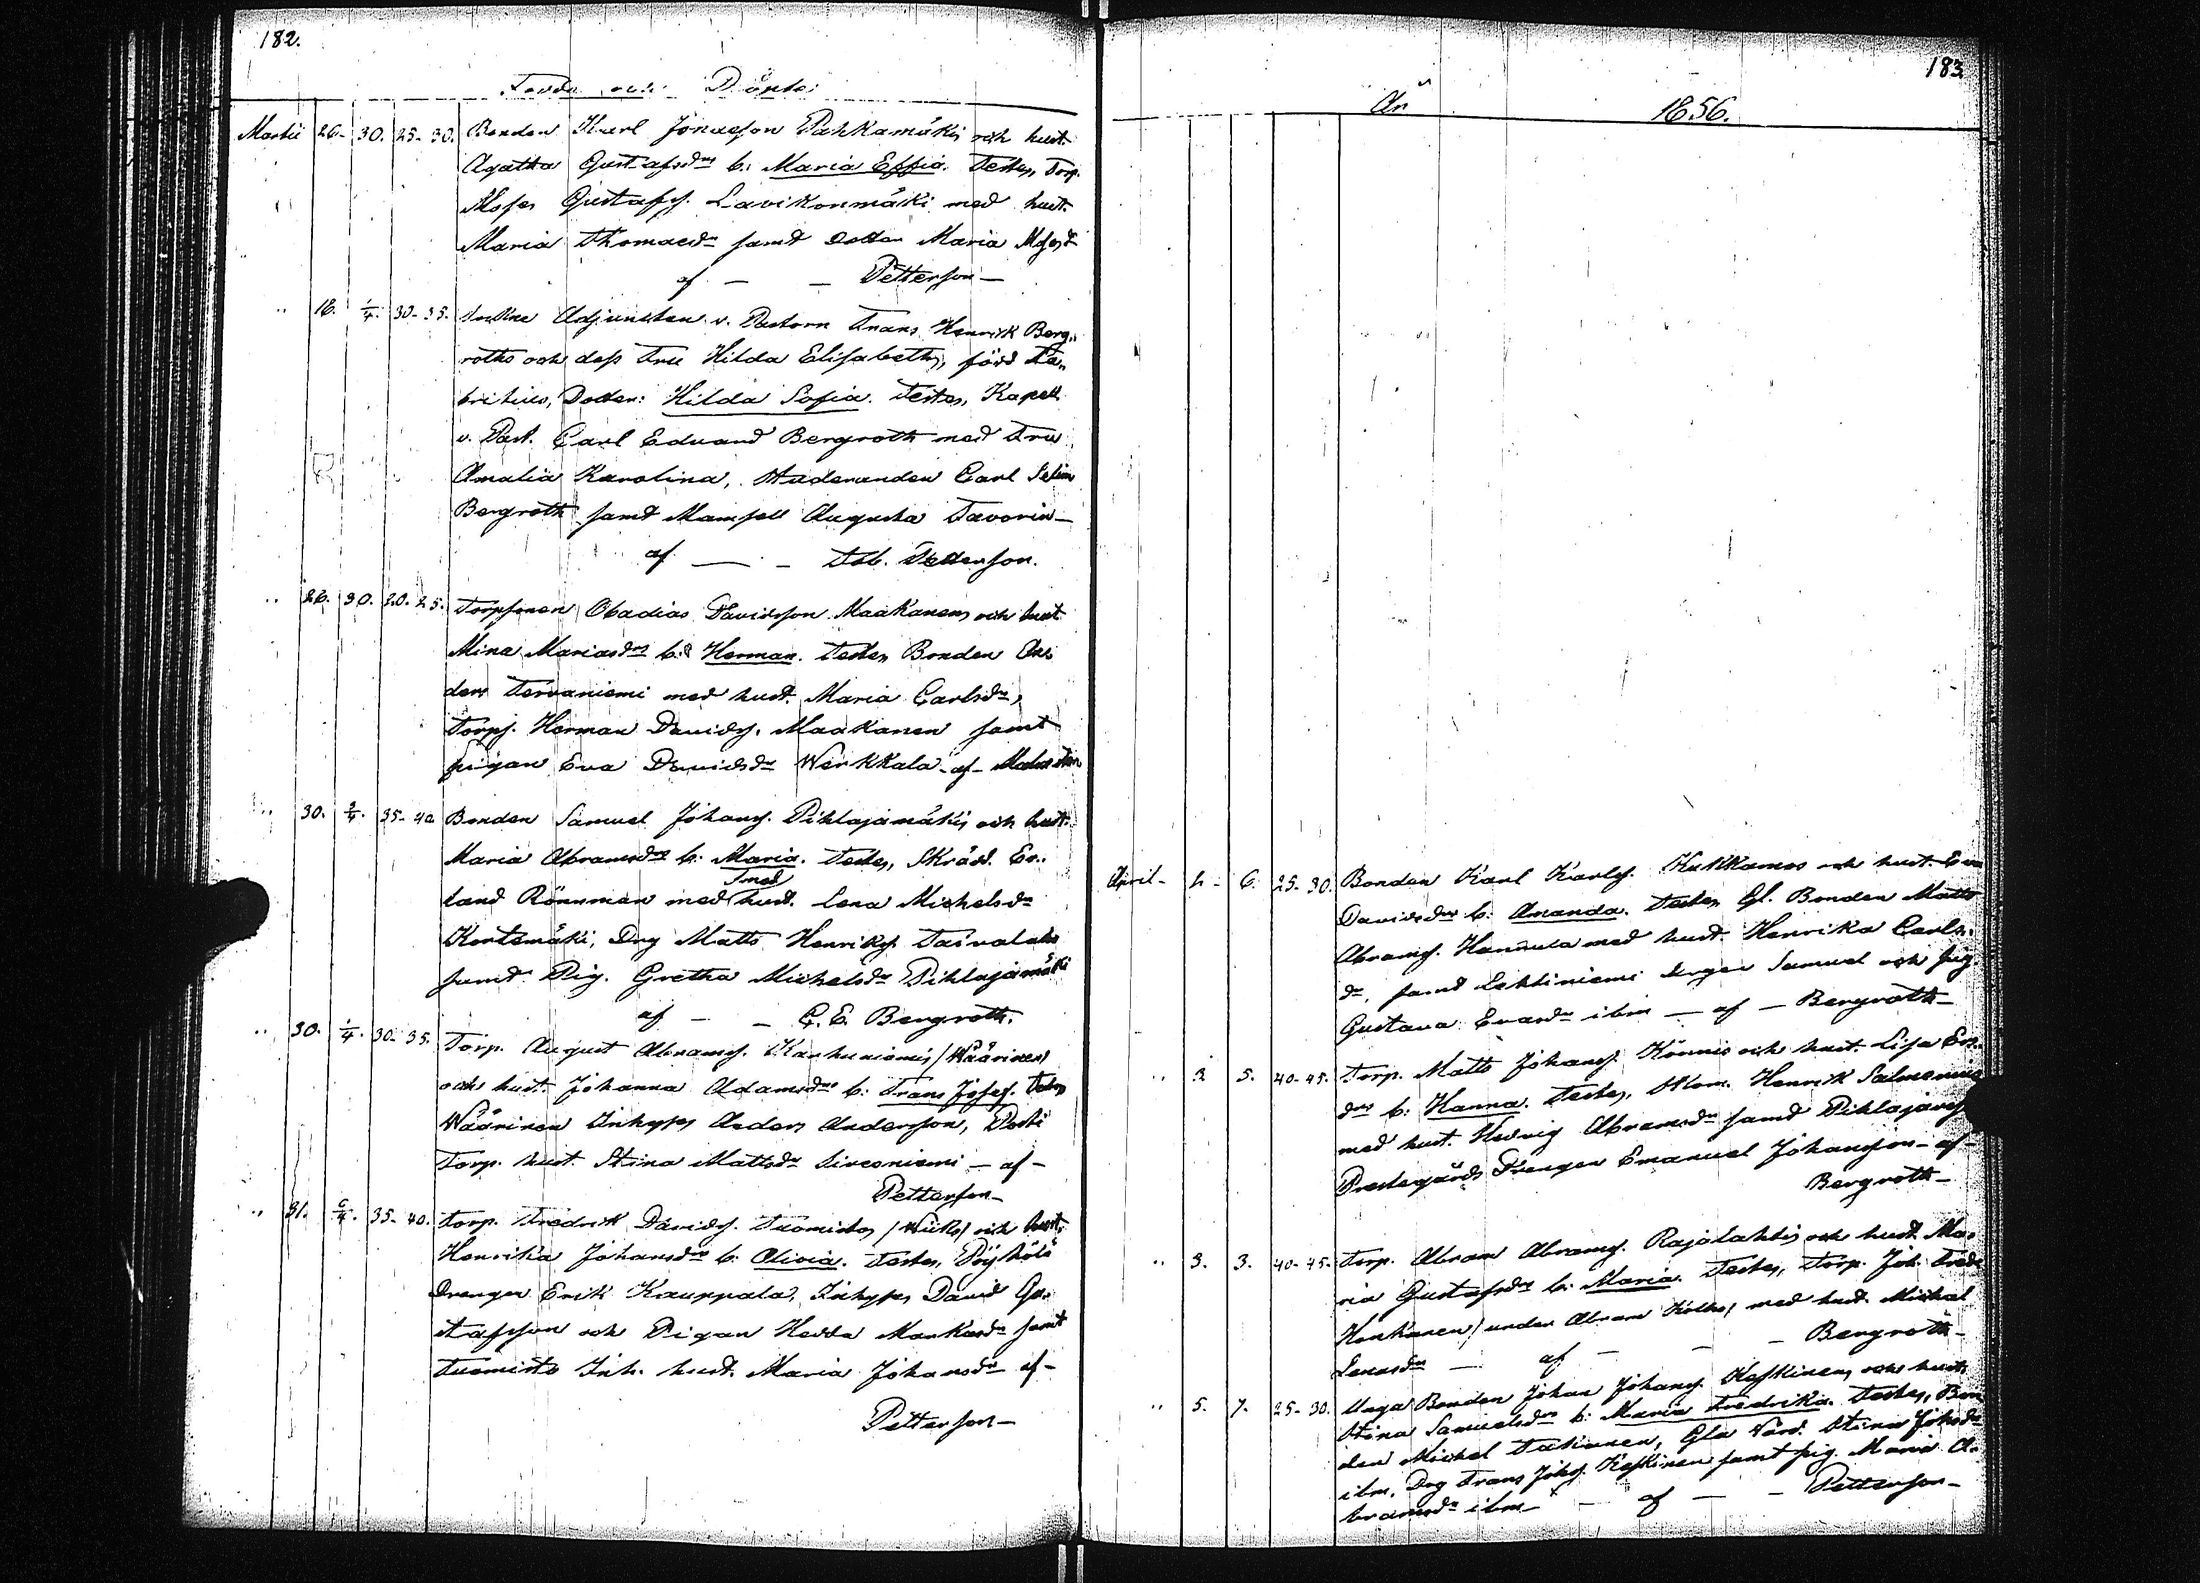 182.
Födde och Döpte
Martii 26- 30. 25-30. Bonden Karl Jonasson Pahkamäki och hust.
Agatha Gustafsdrs b. Maria Effia. Testes, Torp.
Moses Gustafss. Lavikonmäki med hust.
Maria Thomasdr samt dotter Maria Mosesdr
af — — Petterson —
.. 18. 1/4. 30-35. Adjuncten v. Pastorn Frans Henrik Berg„
roths och dess Fru Hilda Elisabeths, född Fa„
britius, Dotter: Hilda Sofia. Testes, Kapell.
v. Past. Carl Eduard Bergroth med Fru
Amalia Karolina, Studeranden Carl Selim
Bergroth samt Mamsell Augusta Favorin —
af — — Petterson.
.. 26. 30. 20. 25. Torpsonen Obadias Davidsson Maakanens och hust
Mina Mariasdrs b. Herman. Testes Bonden
Tervaniemi med hust. Maria Carlsdr,
Torps. Herman Davidss. Maakanen samt
pigan Eva Davidsdr Werkkala - af -
.. 30. 2/4. 35-40 Bonden Samuel Johanss. Pihlajamäkis och hust.
Maria Abramsdrs b. Maria. Testes, Skrädd. Er„
land Rönnman med hust. Lena Michelsdr
Kortemäki, Drg Matts Henrikss.
samt Pig. Gretha Michelsdr Pihlajamäki
af — — C. E. Bergroth.
.. 30. 1/4. 30-35. Torp. August Abramss. Karhuniemis /Wäärinen/
och hust. Johanna Adamsdrs b. Frans Josef. Testes
Wäärinen Inhyses Anders Andersson,
Torp. hust. Stina Mattsdr Sirconiemi — af —
Petterson —
.. 31. 6/4. 35-40. Torp. Fredrik Davidss. Tuomistos /Wiiks/ och hust.
Henrika Johansdrs b. Olivia. Testes,
Drengen Erik Kauppala, Inhyses David Gu„
stafsson och Pigan Hedda Markusdr samt
Tuomisto Inh. hust. Maria Johansdr af —
Petterson —
183.
År 1856.
April - 2 - 6. 25-30. Bonden Karl Karlss. Kukkamos och hust. Eva
Davidsdrs b. Amanda. Testes Gl. Bonden Matts
Abramss. Hannula med hust. Henrika Carls„
dr, samt Lehtiniemi drengen Samuel och pig.
Gustava Evasdr ibm — af — Bergroth —
.. 3. 5. 40-45. Torp. Matts Johanss. Könnis och hust. Lisa
drs b. Hanna. Testes, Henrik Salmenius
med hust. Hedvig Abramsdr samt
Prestegårds Drengen Emanuel Johansson — af —
Bergroth —
.. 3. 3. 40-45. Torp. Abram Abramss. Rajalahtis och hust. Ma„
ria Gustafsdrs b. Maria. Testes, Torp. Joh. Fredr
Honkanen/ under Abram / med hust. Michal
Lenasdr — af — — Bergroth —
.. 5. 7. 25-30. Unga Bonden Johan Johanss. Keskinens och hust.
Stina Samuelsdrs b. Maria Fredrika. Testes, Bon
den Michel Takinen, Gla Värd. Stina Johsdr
ibm, Drg Frans Johss. Keskinen samt pig. Maria A„
bramsdr ibm — af — — Petterson —